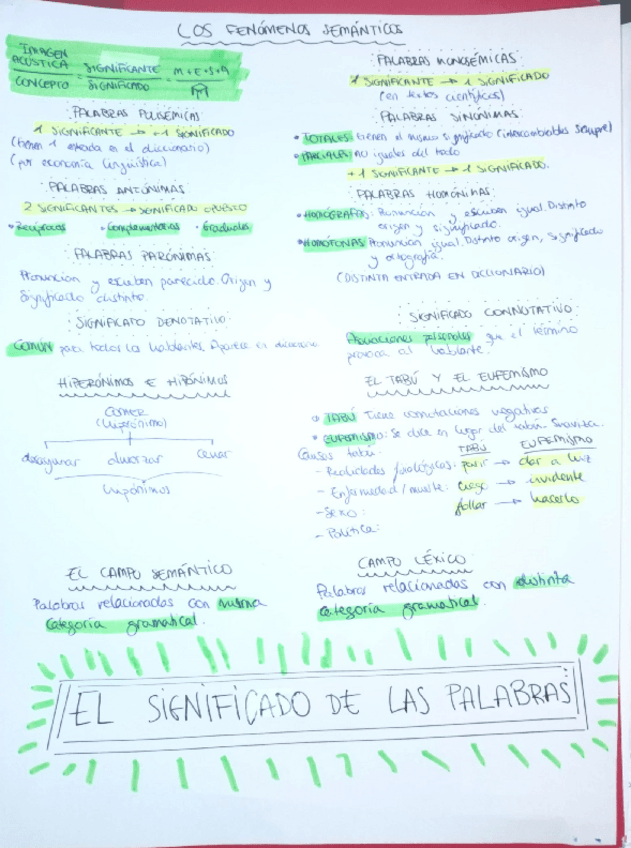 LOS FENÓMENOS SEMÁNTICOS
IMAGEN ACÚSTICA / CONCEPTO = SIGNIFICANTE / SIGNIFICADO = M+E+S+A
PALABRAS POLISÉMICAS
1 SIGNIFICANTE → +1 SIGNIFICADO
(tienen 1 entrada en el diccionario)
(por economía lingüística)
PALABRAS ANTÓNIMAS
2 SIGNIFICANTES → SIGNIFICADO OPUESTO
• Recíprocos • Complementarios • Graduales
PALABRAS PARÓNIMAS
Pronuncian y escriben parecido. Origen y
significado distinto.
SIGNIFICADO DENOTATIVO
COMÚN para todos los hablantes. Aparece en diccionario.
HIPERÓNIMOS E HIPÓNIMOS
COMER
desayunar almorzar cenar
hipónimos
EL CAMPO SEMÁNTICO
Palabras relacionadas con misma
categoría gramatical.
PALABRAS MONOSÉMICAS
1 SIGNIFICANTE → 1 SIGNIFICADO
(en textos científicos)
PALABRAS SINÓNIMAS
• TOTALES: tienen el mismo significado (intercambiables siempre)
• PARCIALES: no iguales del todo
+1 SIGNIFICANTE → 1 SIGNIFICADO.
PALABRAS HOMÓNIMAS
• HOMÓGRAFAS: Pronuncian y escriben igual. Distinto
origen y significado.
• HOMÓFONAS: Pronuncian igual. Distinto origen, significado
y ortografía.
(DISTINTA ENTRADA EN DICCIONARIO)
SIGNIFICADO CONNOTATIVO
Asociaciones personales que el término
provoca al hablante.
EL TABÚ Y EL EUFEMISMO
• TABÚ Tiene connotaciones negativas
• EUFEMISMO: Se dice en lugar del tabú. Suaviza.
Causas tabú: TABÚ EUFEMISMO
- Realidades fisiológicas: parir → dar a luz
- Enfermedad / muerte: ciego → invidente
- Sexo: follar → hacerlo
- Política:
CAMPO LÉXICO
Palabras relacionadas con distinta
categoría gramatical.
EL SIGNIFICADO DE LAS PALABRAS